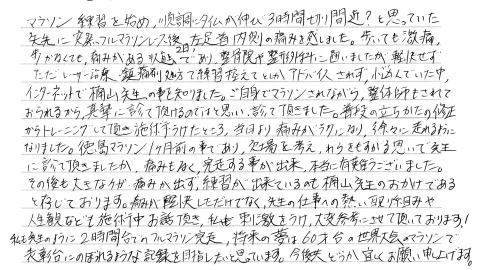 マラソン練習を始め、順調にタイムが伸び、3時間切り間近?と思っていた
矢先に突然、フルマラソンレース後、左足首内側の痛みを感じました。歩いても激痛、
歩かなくても、痛みがある状態2日であり、整骨院や整形外科に通いましたが軽快せず
ただレーザー治療、鎮痛剤処方で練習控えてとしかアドバイスされず、小泣んでいた中、
インターネットで桐山先生の事を知りました。ご自身でマラソンされながら、整体師もされて
おられるから、真摯に診て頂けるのではと思い、診て頂きました。普段の立ちかたの修正
からトレーニングして頂き施術受けたところ、当日より痛みがうすくなり、徐々に走れるように
なりました。徳島マラソン1ヶ月前の事であり、欠場を考え、わらをもすがる思いで先生
に診て頂きましたが、痛みも無く、完走する事が出来、本当に有難うございました。
その後も大きなケガ痛みが出ず、練習が出来ているのも桐山先生のおかげである
と存じております。痛みが軽快しただけでなく、先生の仕事への熱い取り組みや
人生観なども施術中お話頂き、私も刺激をうけ、大変参考にさせて頂いております!
私も先生のように2時間台でのフルマラソン完走、将来の夢は60才台の世界大会マラソンで
表彰台にのぼれるような記録を目指したいと思っています。今後共どうか宜しくお願い申し上げます。